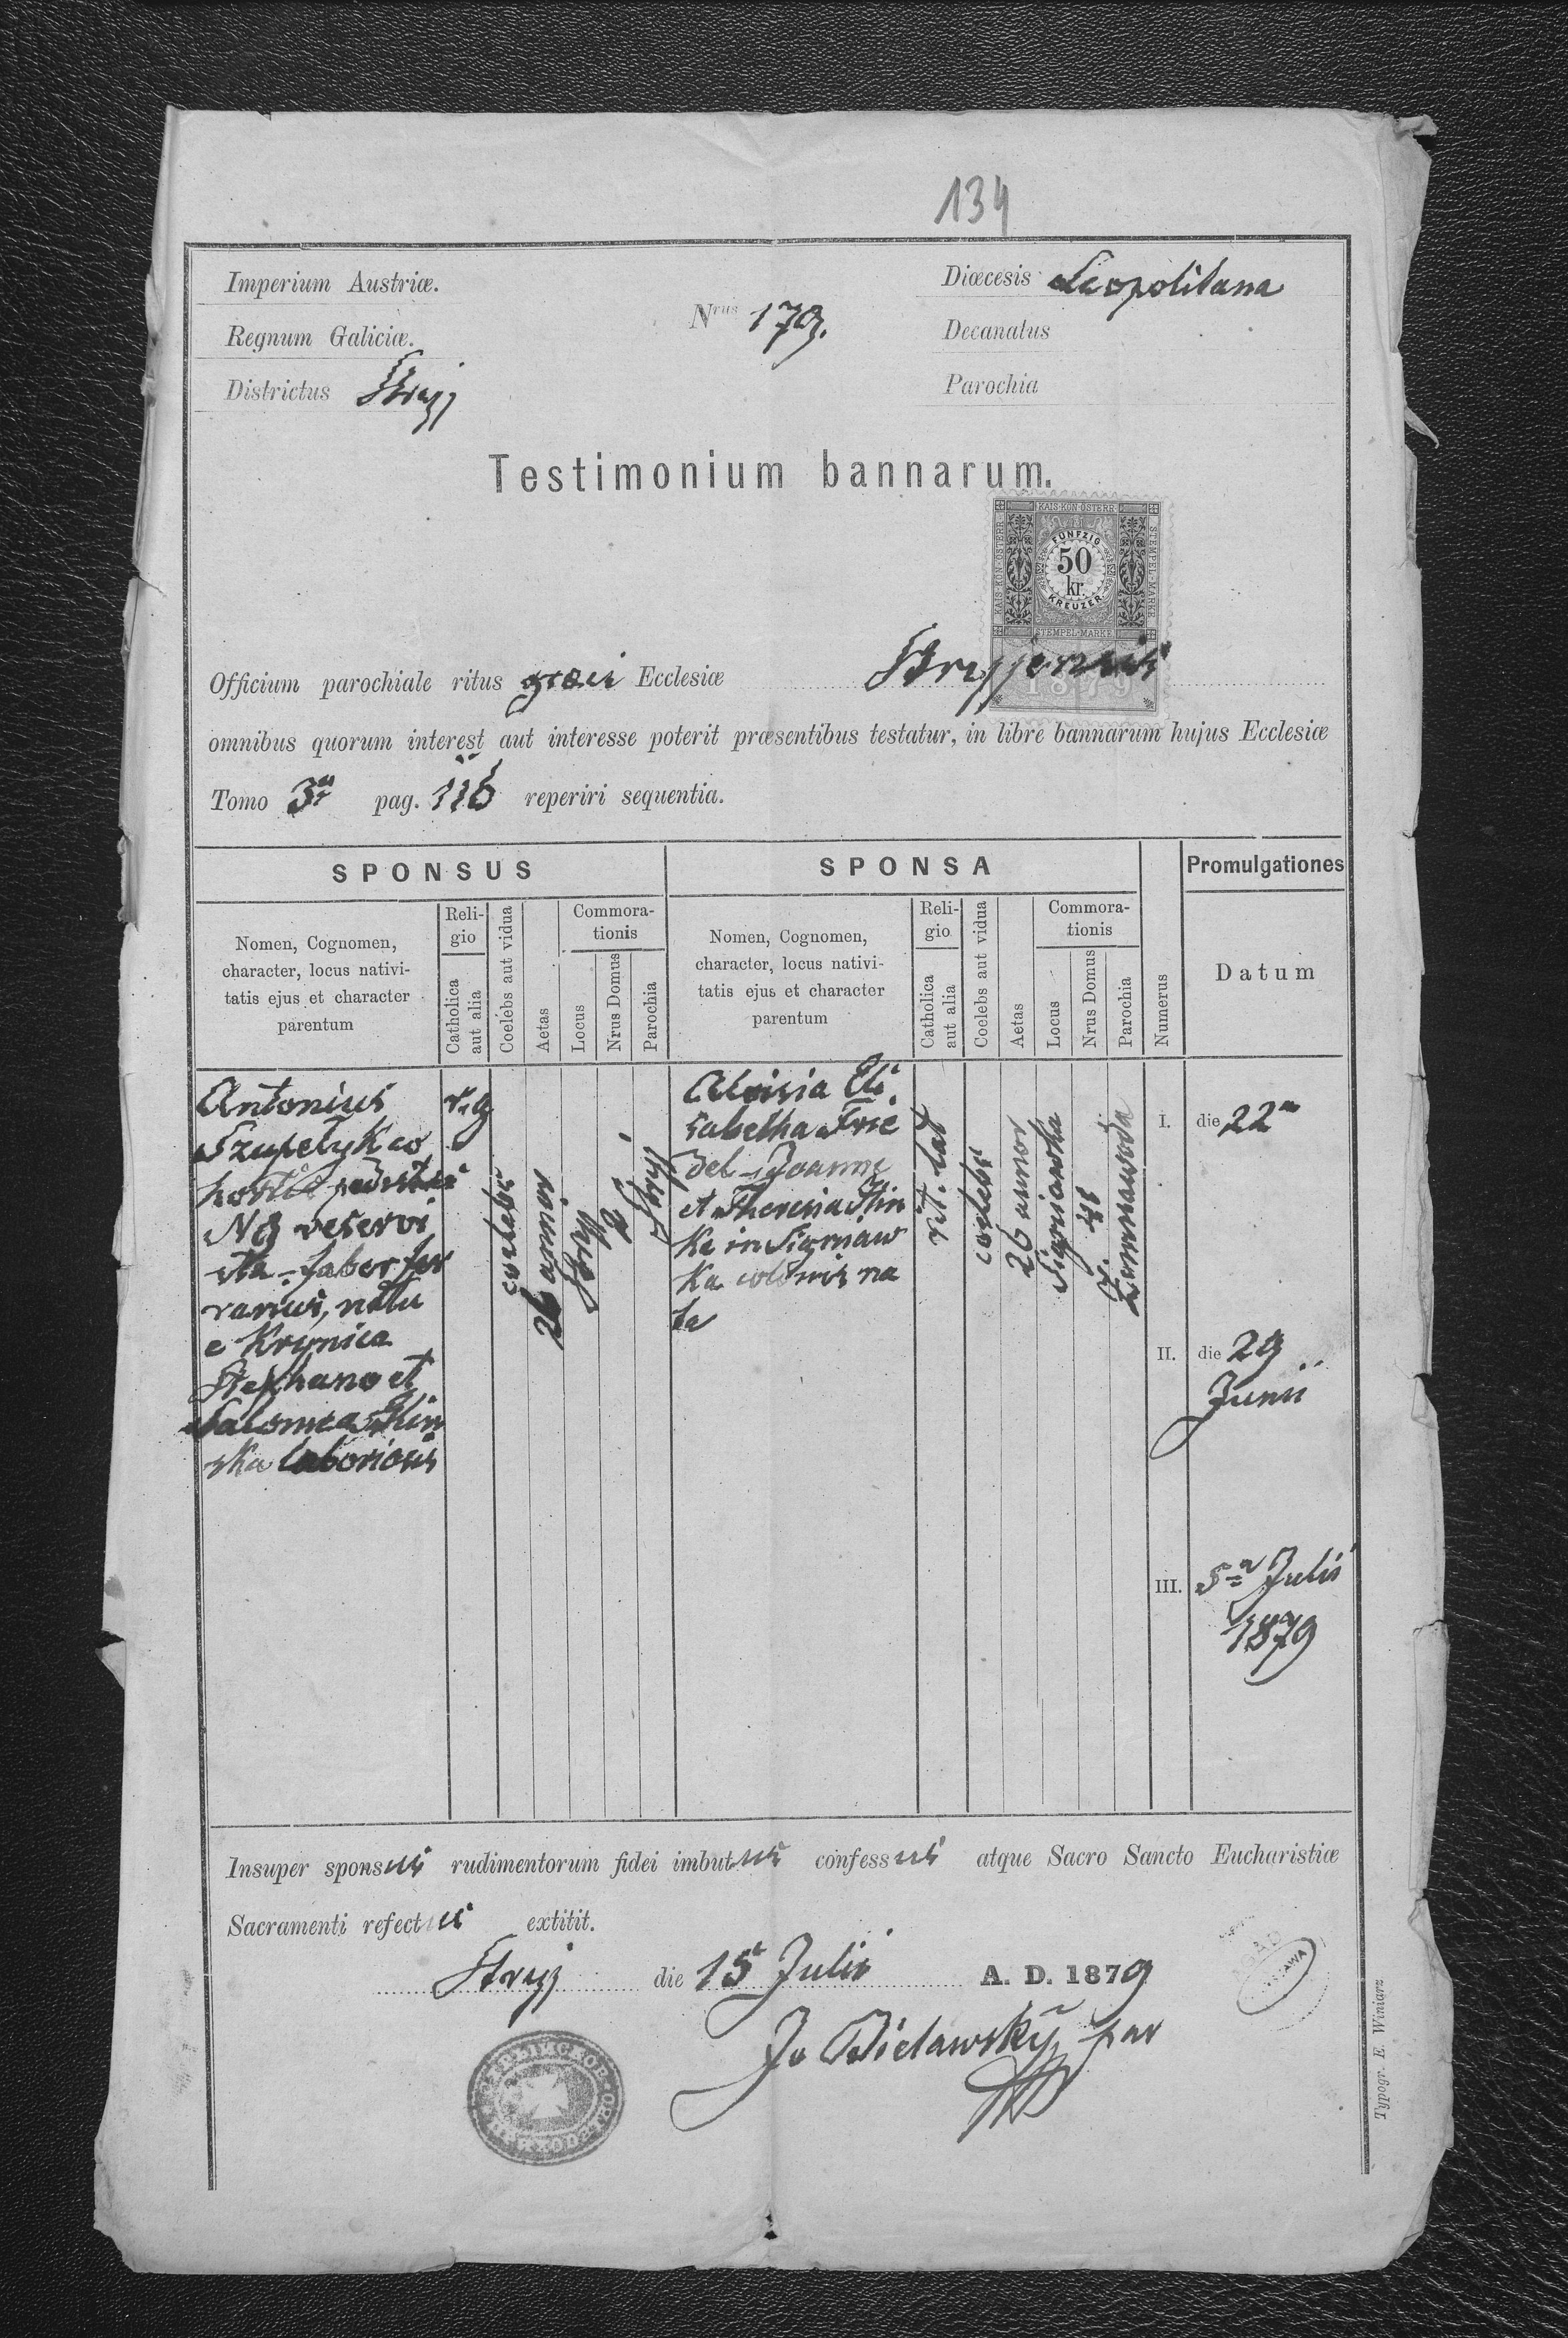 134
Imperium Austriæ.
Nrus 179.
Diœcesis Leopolitana
Regnum Galiciæ.
Decanatus
Districtus Stryj
Parochia
Testimonium bannarum.
KAIS. KÖN. ÖSTERR.
KAIS. KÖN. ÖSTERR.
STEMPEL-MARKE
FÜNFZIG
50
kr.
KREUZER
STEMPEL-MARKE
1879
Officium parochiale ritus græci Ecclesiæ Stryjensis
omnibus quorum interest aut interesse poterit præsentibus testatur, in libre bannarum hujus Ecclesiæ
Tomo 3 pag. 116 reperiri sequentia.
SPONSUS
SPONSA
Numerus
Promulgationes
Nomen, Cognomen,
character, locus nativi-
tatis ejus et character
parentum
Reli-
gio
Catholica
aut alia
Coelebs aut vidua
Aetas
Commora-
tionis
Locus
Nrus Domus
Parochia
Nomen, Cognomen,
character, locus nativi-
tatis ejus et character
parentum
Reli-
gio
Catholica
aut alia
Coelebs aut vidua
Aetas
Commora-
tionis
Locus
Nrus Domus
Parochia
Datum
Antonius
Szupelyk co
hortis
N 9 reservi
sta faber fer
rarius, natu
e Krynica
Stephano et
Salomea Hlin
ska laboriosis
r. g
coelebs
26 annor
Stryj
Stryj
Aloisia Eli
sabetha Frie
del Joanne
et Theresia Stin
ke in Signiaw
ka colonis na
ta
rit. lat
coelebs
26 annor
Signiawka
Zimnawoda
I. die 22a
II. die 29
Junii
III. 5a Julii
1879
Insuper sponsus rudimentorum fidei imbutus confessus atque Sacro Sancto Eucharistiæ
Sacramenti refectus extitit.
Stryj die 15 Julii A. D. 1879
Jo Bielawsky par
Typogr. E. Winiarz